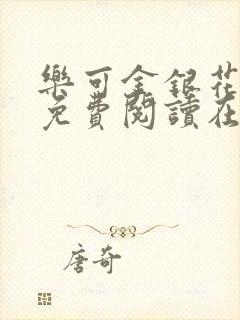 樂可金銀花
免費閱讀在
唐奇